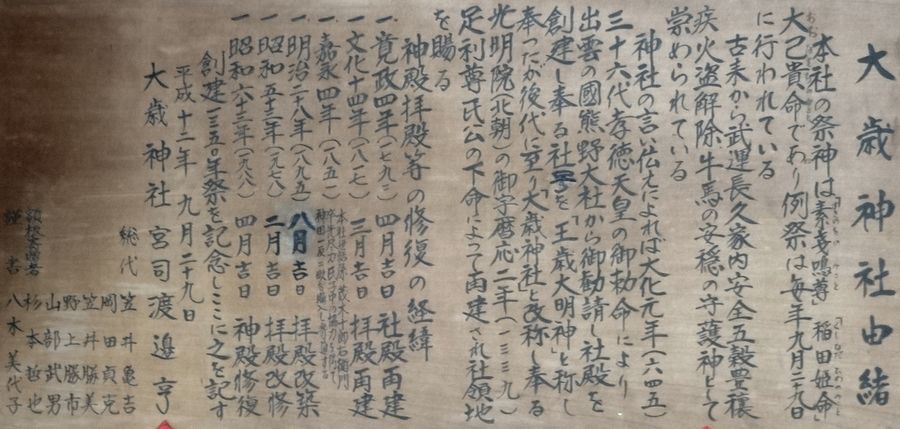 大歳神社由緒
本社の祭神は素戔嗚尊 稲田姫命
大己貴命であり例祭は毎年九月二十九日
に行われている
古来から武運長久家内安全五穀豊穣
疾火盗解除牛馬の安穏の守護神として
崇められている
神社の言い伝えによれば大化元年(六四五)
三十六代孝徳天皇の御勅命により
出雲の國熊野大社から御勧請し社殿を
創建し奉る社号を「王歳大明神」と称し
奉ったが後代に至り「大歳神社」と改称し奉る
光明院(北朝)の御宇暦応二年(一三三九)
足利尊氏公の下命によって再建され社領地
を賜る
神殿拝殿等の修復の経緯
一 寛政四年(一七九二) 四月吉日 社殿再建
一 文化十四年(一八一七) 三月吉日 拝殿再建
一 嘉永四年(一八五一)
一 明治二十八年(一八九五) 八月吉日 拝殿改築
一 昭和五十三年(一九七八) 二月吉日 拝殿改修
一 昭和六十三年(一九八八) 四月吉日 神殿修復
創建一三五〇年祭を記念しここに之を記す
平成十二年 九月二十九日
大歳神社 宮司 渡邉 亨
総代 笠井亀吉
岡田貞克
笠井勝美
野上勝市
山部武男
杉本哲也
謹書 八木美代子